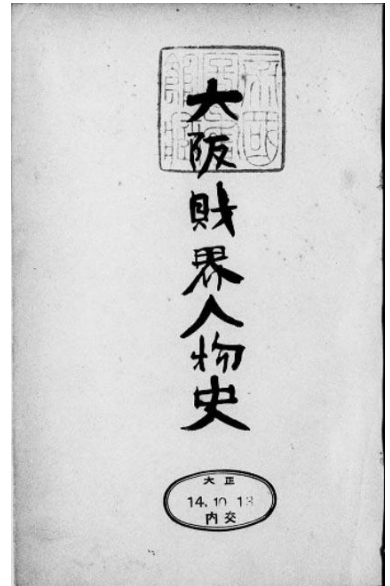 大阪財界人物史
大正
14.10.13
内交